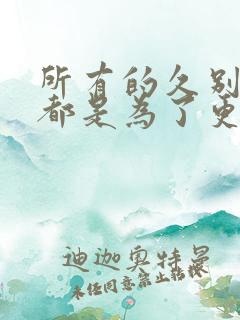 所有的久别
都是为了更
迪迦奥特曼
未经同意禁止转载